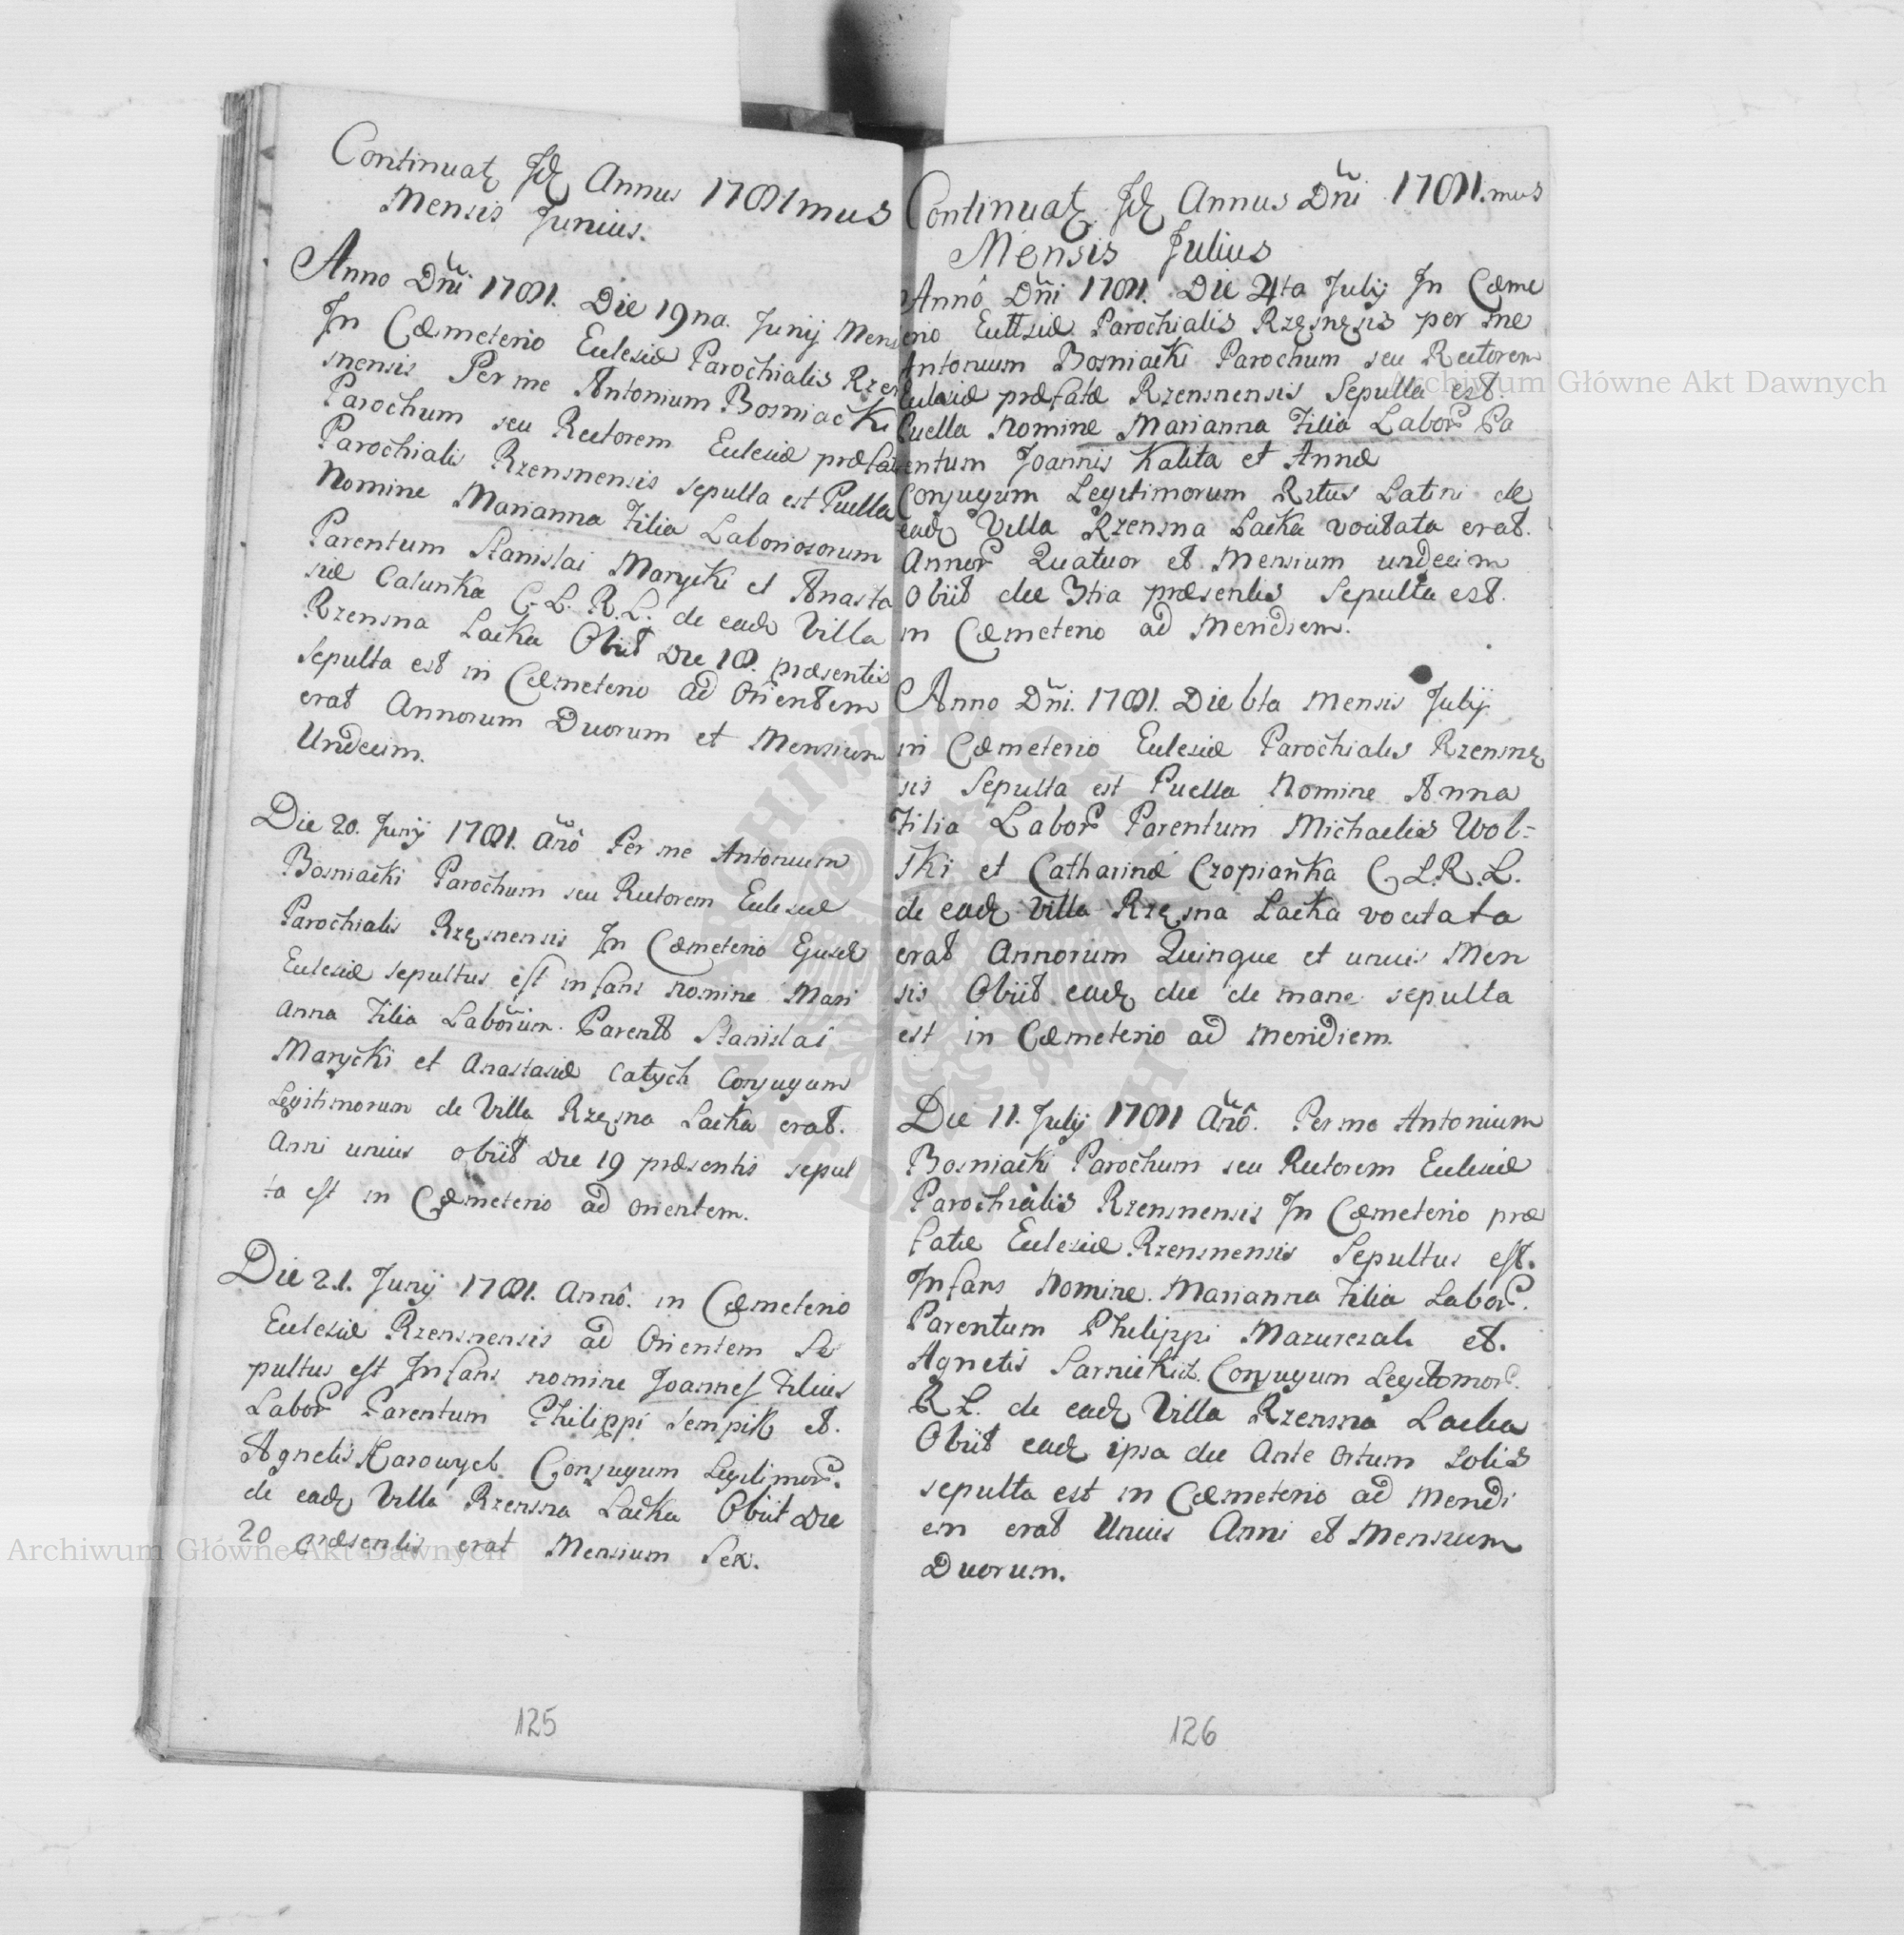 Continuatꝫ Idꝫ Annus 1781mus
Mensis Junius.
Anno Dñi 1781. Die 19na. Junij Mens
In Cæmeterio Eclesiæ Parochialis Rzens
nensis Per me Antonium Bosniacki
Parochum seu Rectorem Eclesiæ præfatæ
Parochialis Rzensnensis sepulta est Puella
Nomine Marianna Filia Laboriosorum
Parentum Stanislai Marycki et Anasta
siæ Calunka C. L. R. L. de eadꝫ Villa
Rzensna Lacka Obiit Die 18. præsentis
Sepulta est in Cæmeterio ad Orientem
erat Annorum Duorum et Mensium
Undecim.
Die 20. Junij 1781. Anõ Per me Antonium
Bosniacki Parochum seu Rectorem Eclesiæ
Parochialis Rzęsnensis In Cæmeterio Ejusdꝫ
Eclesiæ sepultus est infans nomine Mari
anna Filia Laborium. Parent Stanislai
Marycki et Anastasiæ Catych Conjugum
Legitimorum de Villa Rzęsna Lacka erat.
Anni unius obiit Die 19 præsentis sepul
ta est in Cæmeterio ad orientem.
Die 21. Junij 1781. Annô. in Cæmeterio
Eclesiæ Rzensnensis ad Orientem Se
pultus est Infans nomine Joannes Filius
Labor Parentum Philippi Sempik et.
Agnetis Karowych Conjugum Legitimor.
de eadꝫ Villa Rzensna Lacka Obiit Die
20 præsentis erat Mensium Sex.
125
Continuatꝫ Idꝫ Annus Dñi 1781.mus
Mensis Julius
Annô Dñi 1781. Die 4ta Julij In Cæme
erio Eccłsiæ Parochialis Rzęsnęsis per me
Antonium Bosniacki Parochum seu Rectorem
Eclesiæ præfatæ Rzensnensis Sepulta est.
Puella Nomine Marianna Filia Labor Pa
rentum Joannis Kalita et Annæ
Conjugum Legitimorum Ritus Latini de
eadꝫ Villa Rzensna Lacka vocitata erat.
Annor Quatuor et Mensium undecim
Obiit die 3tia præsentis Sepulta est.
in Cæmeterio ad Meridiem.
Anno Dñi. 1781. Die 6ta Mensis Julij
in Cæmeterio Eclesiæ Parochialis Rzensnę
sis Sepulta est Puella Nomine Anna
Filia Labor Parentum Michaelis Wol=
ski et Catharinæ Czopianka C. L. R. L.
de eadꝫ Villa Rzęsna Lacka vocitata
erat Annorum Quinque et unius Men
sis Obiit eadꝫ die de mane sepulta
est in Cæmeterio ad Meridiem.
Die 11. Julij 1781 Añô. Per me Antonium
Bosniacki Parochum seu Rectorem Eclesiæ
Parochialis Rzensnensis In Cæmeterio præ
fatæ Eclesiæ Rzensnensis Sepultus est.
Infans Nomine. Marianna Filia Labor.
Parentum Philippi Mazurczak et.
Agnetis Conjugum Legitimor.
R L. de eadꝫ Villa Rzensna Lacka
Obiit eadꝫ ipsa die Ante Ortum Solis
sepulta est in Cæmeterio ad Meridi
em erat Unius Anni et Mensium
Duorum.
126
Archiwum Główne Akt Dawnych
Archiwum Główne Akt Dawnych